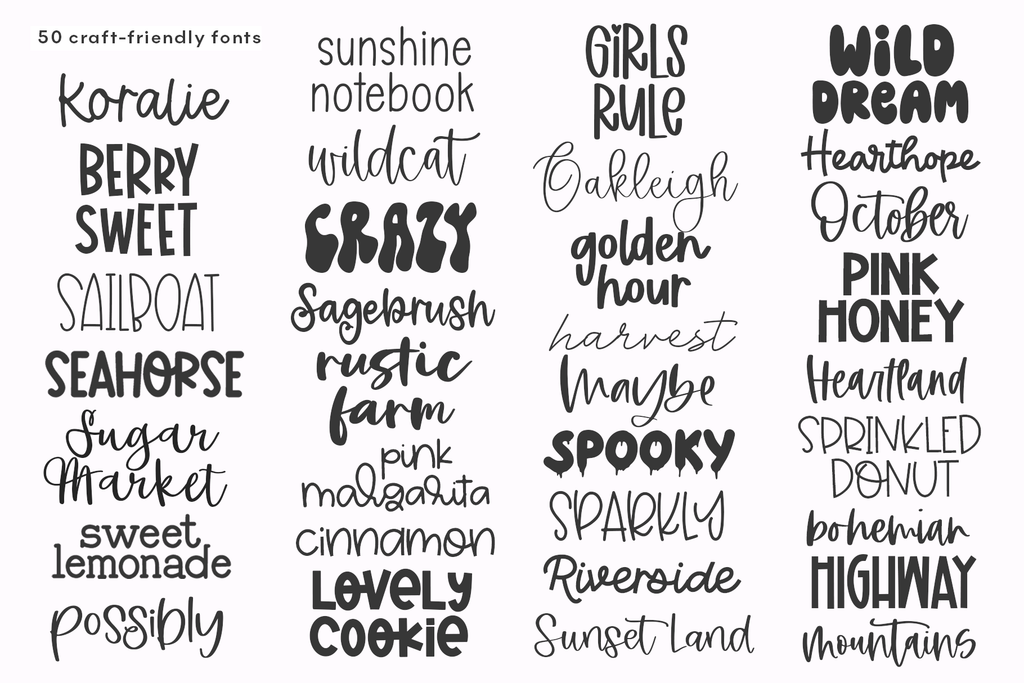 50 craft-friendly fonts
Koralie
BERRY
SWEET
SAILBOAT
SEAHORSE
Sugar
Market
sweet
lemonade
possibly
sunshine
notebook
wildcat
CRAZY
Sagebrush
rustic
farm
pink
margarita
cinnamon
LOVELY
COOKIE
GiRLS
RULE
Oakleigh
golden
hour
harvest
Maybe
SPOOKY
SPARKLY
Riverside
Sunset Land
WiLD
DREAM
Hearthope
October
PINK
HONEY
Heartland
SPRINKLED
DONUT
bohemian
HIGHWAY
mountains